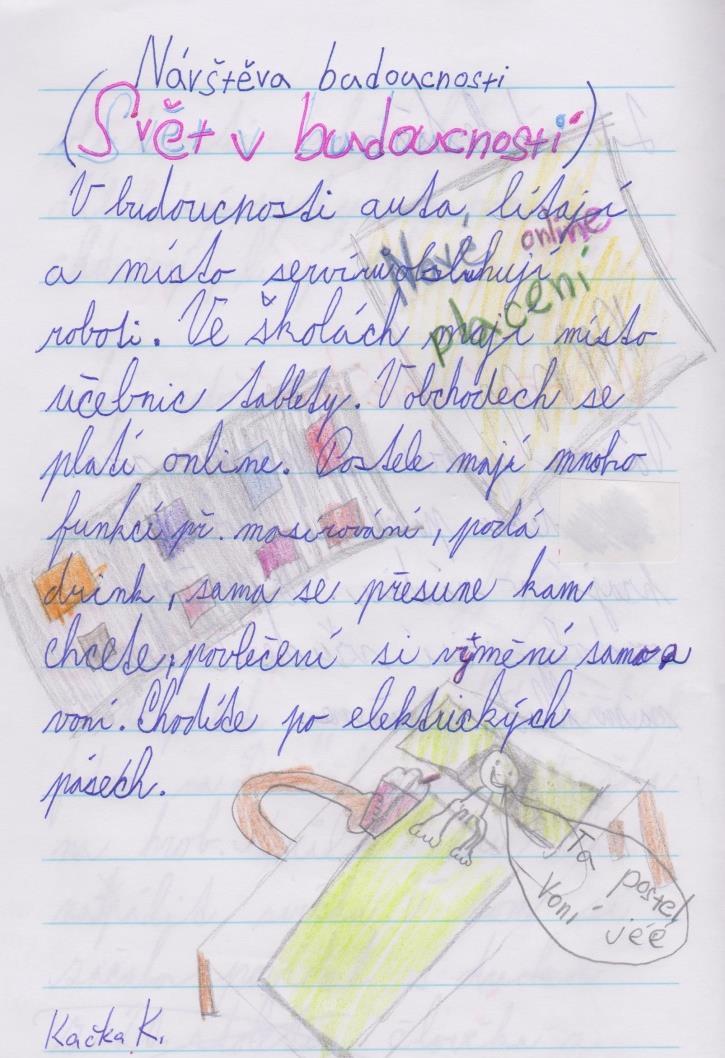 Návštěva budoucnosti
(Svět v budoucnosti)
V budoucnosti auta, lítají
a místo servíru obsluhují
roboti. Ve školách mají místo
učebnic tablety. V obchodech se
platí online. Postele mají mnoho
funkcí př. masírování, podá
drink, sama se přesune kam
chcete, povlečení si vymění samo a
voní. Chodíte po elektrických
pásech.
Nové online
placení
Ta postel
voní jéé
Kačka K.